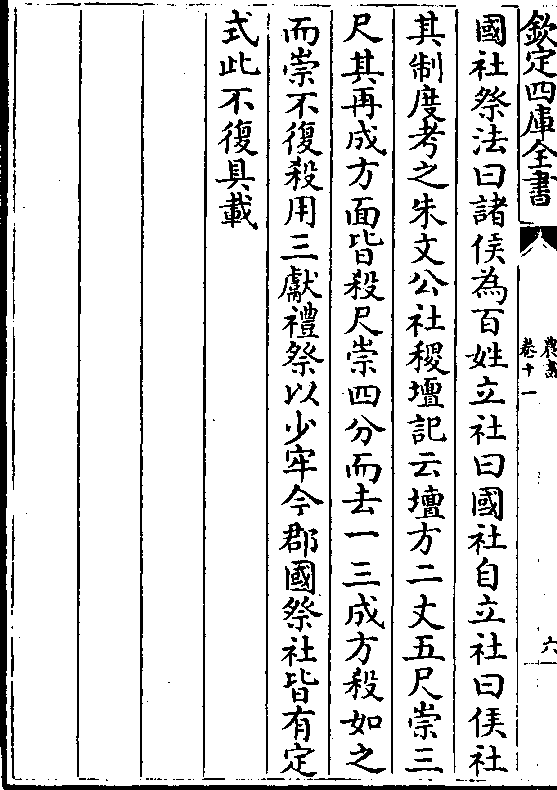 欽定四庫全書
農書
卷十一
六
國社祭法曰諸侯為百姓立社曰國社自立社曰侯社
其制度考之朱文公社稷壇記云壇方二丈五尺崇三
尺其再成方面皆殺尺崇四分而去一三成方殺如之
而崇不復殺用三獻禮祭以少牢今郡國祭社皆有定
式此不復具載